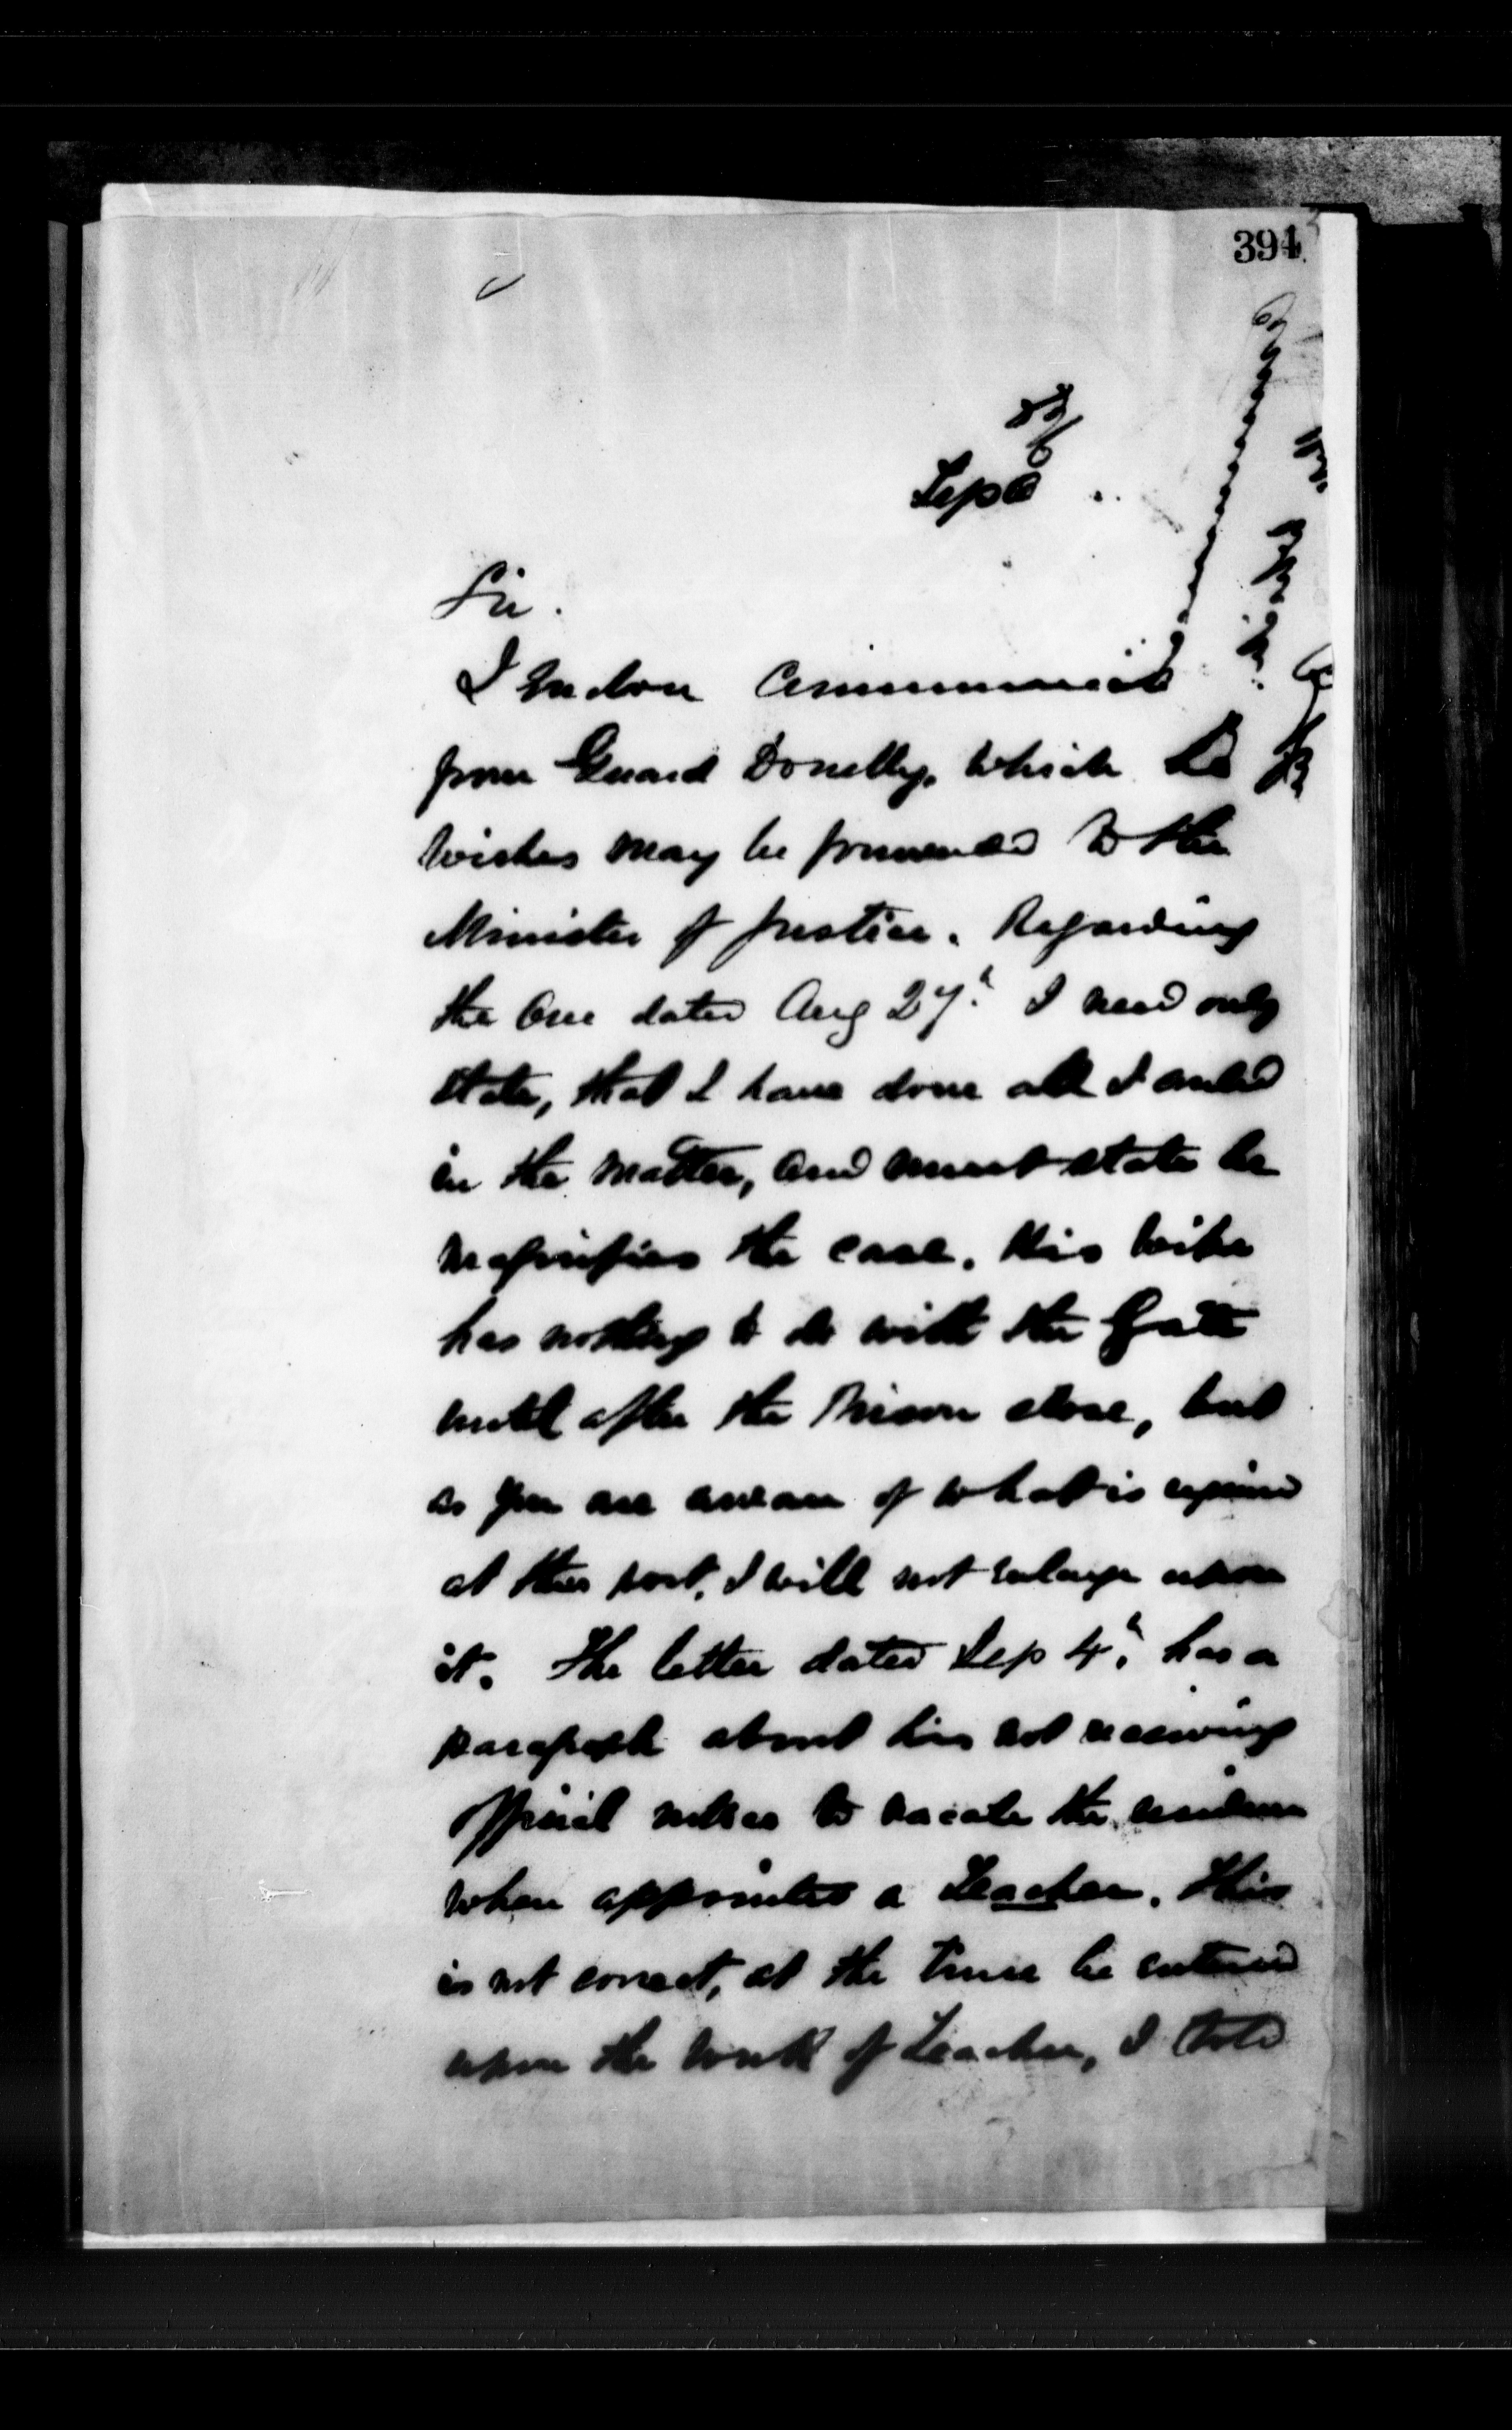 394
Sep 6
Sir.
I enclose Communicat
from Guard Donelly, which he
wishes may be forwarded to the
Minister of Justice. Regarding
the One dated Aug 27th I need only
state, that I have done all I could
in the matter, and must state he
magnifies the case. His wife
has nothing to do with the Gate
until after the Prison close, but
as you are aware of what is required
at this post, I will not enlarge upon
it. The letter dated Sep 4th has a
paragraph about his not receiving
Official notice to vacate the residence
when appointed a Teacher. This
is not correct, at the time he entered
upon the work of Teacher, I told